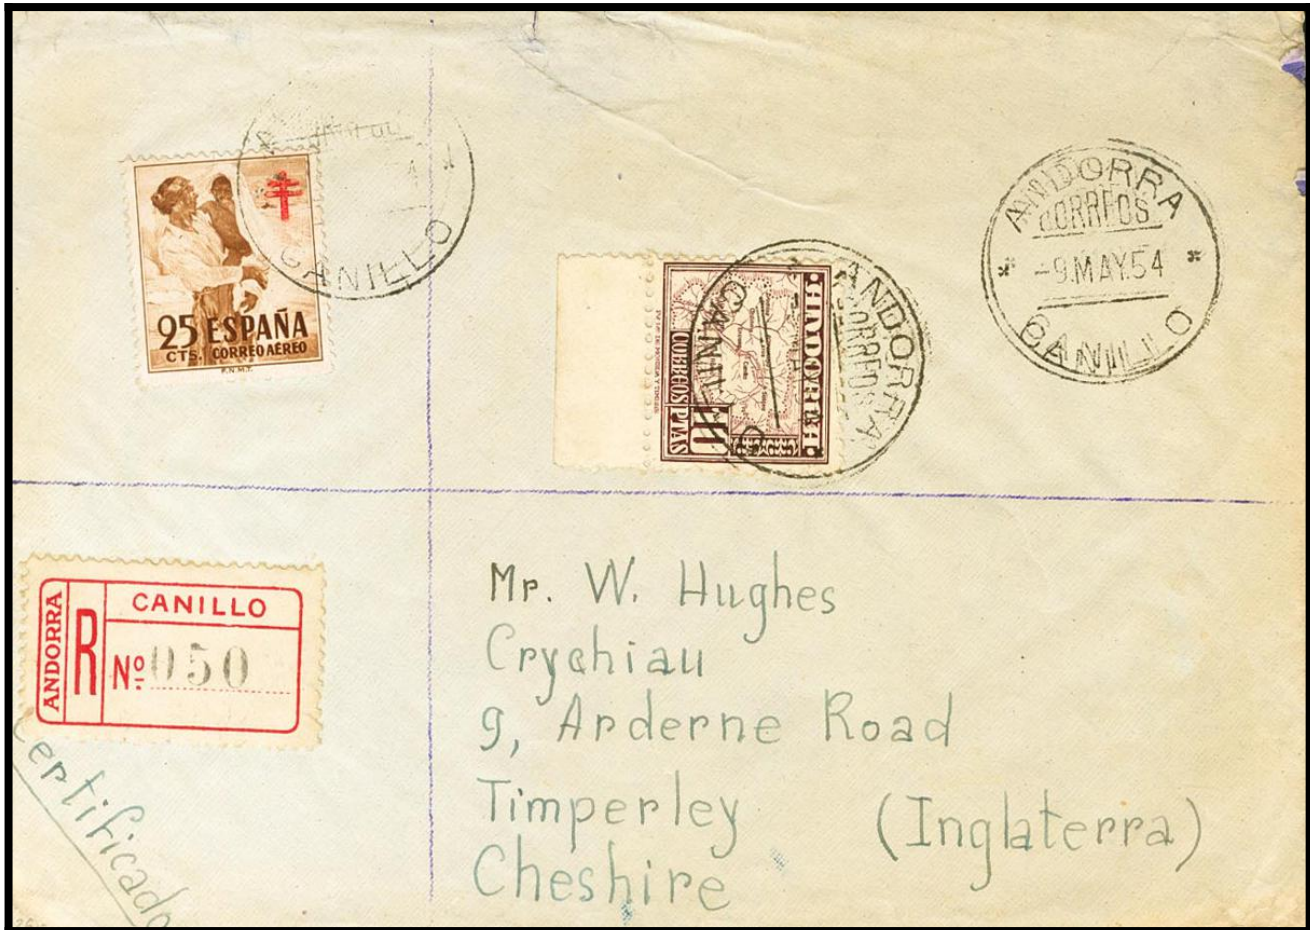 CANILLO
25 ESPAÑA
CTS. CORREO AÉREO
F.N.M.T.
ANDORRA
CORREOS
CANILLO
ANDORRA
CORREOS 10 PTAS
ANDORRA
CORREOS
-9.MAY.54
CANILLO
ANDORRA
R
CANILLO
Nº 050
Certificado
Mr. W. Hughes
Crychiau
9, Arderne Road
Timperley (Inglaterra)
Cheshire